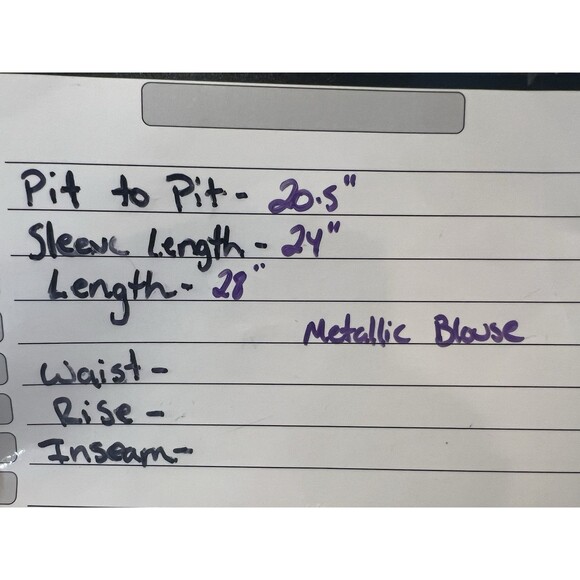 Pit to Pit - 20.5"
Sleeve Length - 24"
Length - 28"
Metallic Blouse
Waist -
Rise -
Inseam -